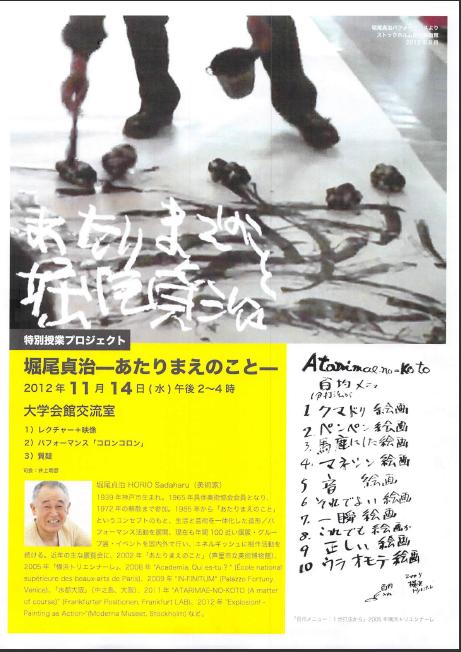 堀尾貞治パフォーマンスより
2012年8月
あたりまえのこと
堀尾貞治
特別授業プロジェクト
堀尾貞治―あたりまえのこと―
2012年11月14日(水)午後2～4時
大学会館交流室
1）レクチャー+映像
2）パフォーマンス「コロンコロン」
3）質疑
堀尾貞治 HORIO Sadaharu（美術家）
1939年神戸市生まれ。1965年具体美術協会会員となり、
1972年の解散まで参加。1985年から「あたりまえのこと」
というコンセプトのもと、生活と芸術を一体化した造形／パ
フォーマンス活動を展開、現在も年間100近い個展・グルー
プ展・イベントを国内外で行い、エネルギッシュに制作活動を
続ける。近年の主な展覧会に、2002年「あたりまえのこと」（芦屋市立美術博物館）、
2005年「横浜トリエンナーレ」、2008年 "Academia, Qui es-tu ?" (École national
supérieure des beaux-arts de Paris)、2009年 "IN-FINITUM" (Palazzo Fortuny,
Venice)、「水都大阪」（中之島、大阪）、2011年 "ATARIMAE-NO-KOTO (A matter
of course)" (Frankfurter Positionen, Frankfurt LAB)、2012年 "Explosion! -
Painting as Action-"(Moderna Museet, Stockholm) など。
Atarimae-no-Koto
百均メニュー
1 クマドリ 絵画
2 ペンペン 絵画
3. 馬鹿にした絵画
4. マネゾン 絵画
5 音 絵画
6 それでよい 絵画
7. 一瞬 絵画
8. これでも 絵画か
9 正しい 絵画
10 ウラ オモテ 絵画
2005
横浜
「百均メニュー：1分打法から」2005年横浜トリエンナーレ